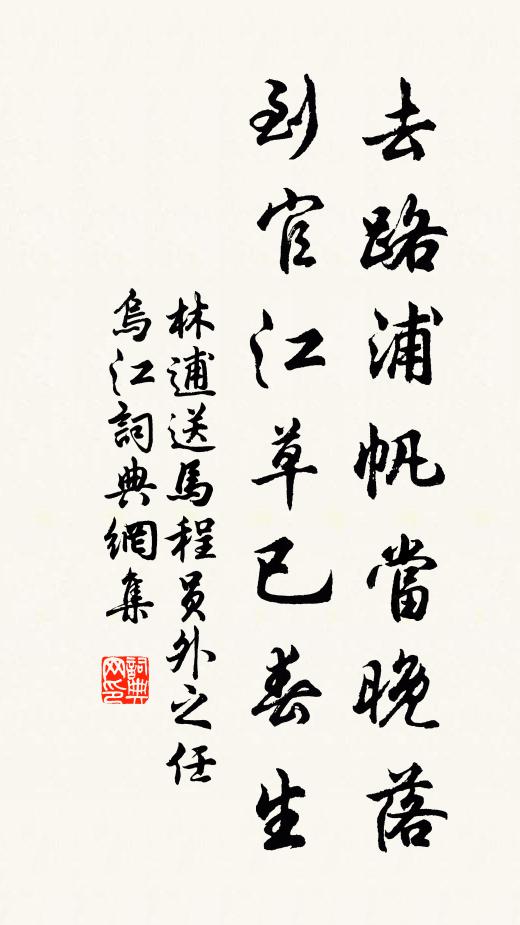 去路浦帆當晚落
到官江草已春生
林逋送馬程員外之任
烏江詞典網集
詞典网印